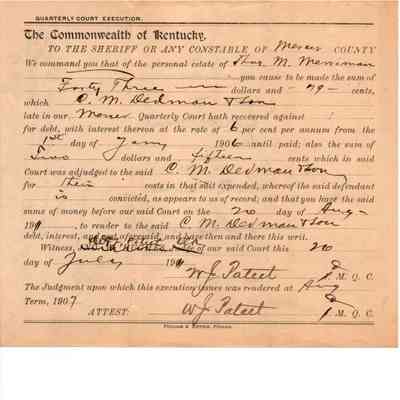 QUARTERLY COURT EXECUTION.
The Commonwealth of Kentucky.
TO THE SHERIFF OR ANY CONSTABLE OF Mercer COUNTY
We command you that of the personal estate of Thos. M. Merriman
you cause to be made the sum of
Forty Three dollars and -79- cents,
which C. M. Dedman & Son
late in our Mercer Quarterly Court hath recovered against
for debt, with interest thereon at the rate of 6 per cent per annum from the
1st day of Jany 1906 until paid; also the sum of
Two dollars and fifteen cents which in said
Court was adjudged to the said C. M. Dedman & Son
for their costs in that suit expended, whereof the said defendant
is convicted, as appears to us of record; and that you have the said
sums of money before our said Court on the 20 day of Aug
190, to render to the said C. M. Dedman & Son
debt, interest, and cost aforesaid, and have then and there this writ.
Witness, of our said Court this 20
day of July 190
M. Q. C.
The Judgment upon which this execution issues was rendered at Aug
Term, 1907
ATTEST: M. Q. C.